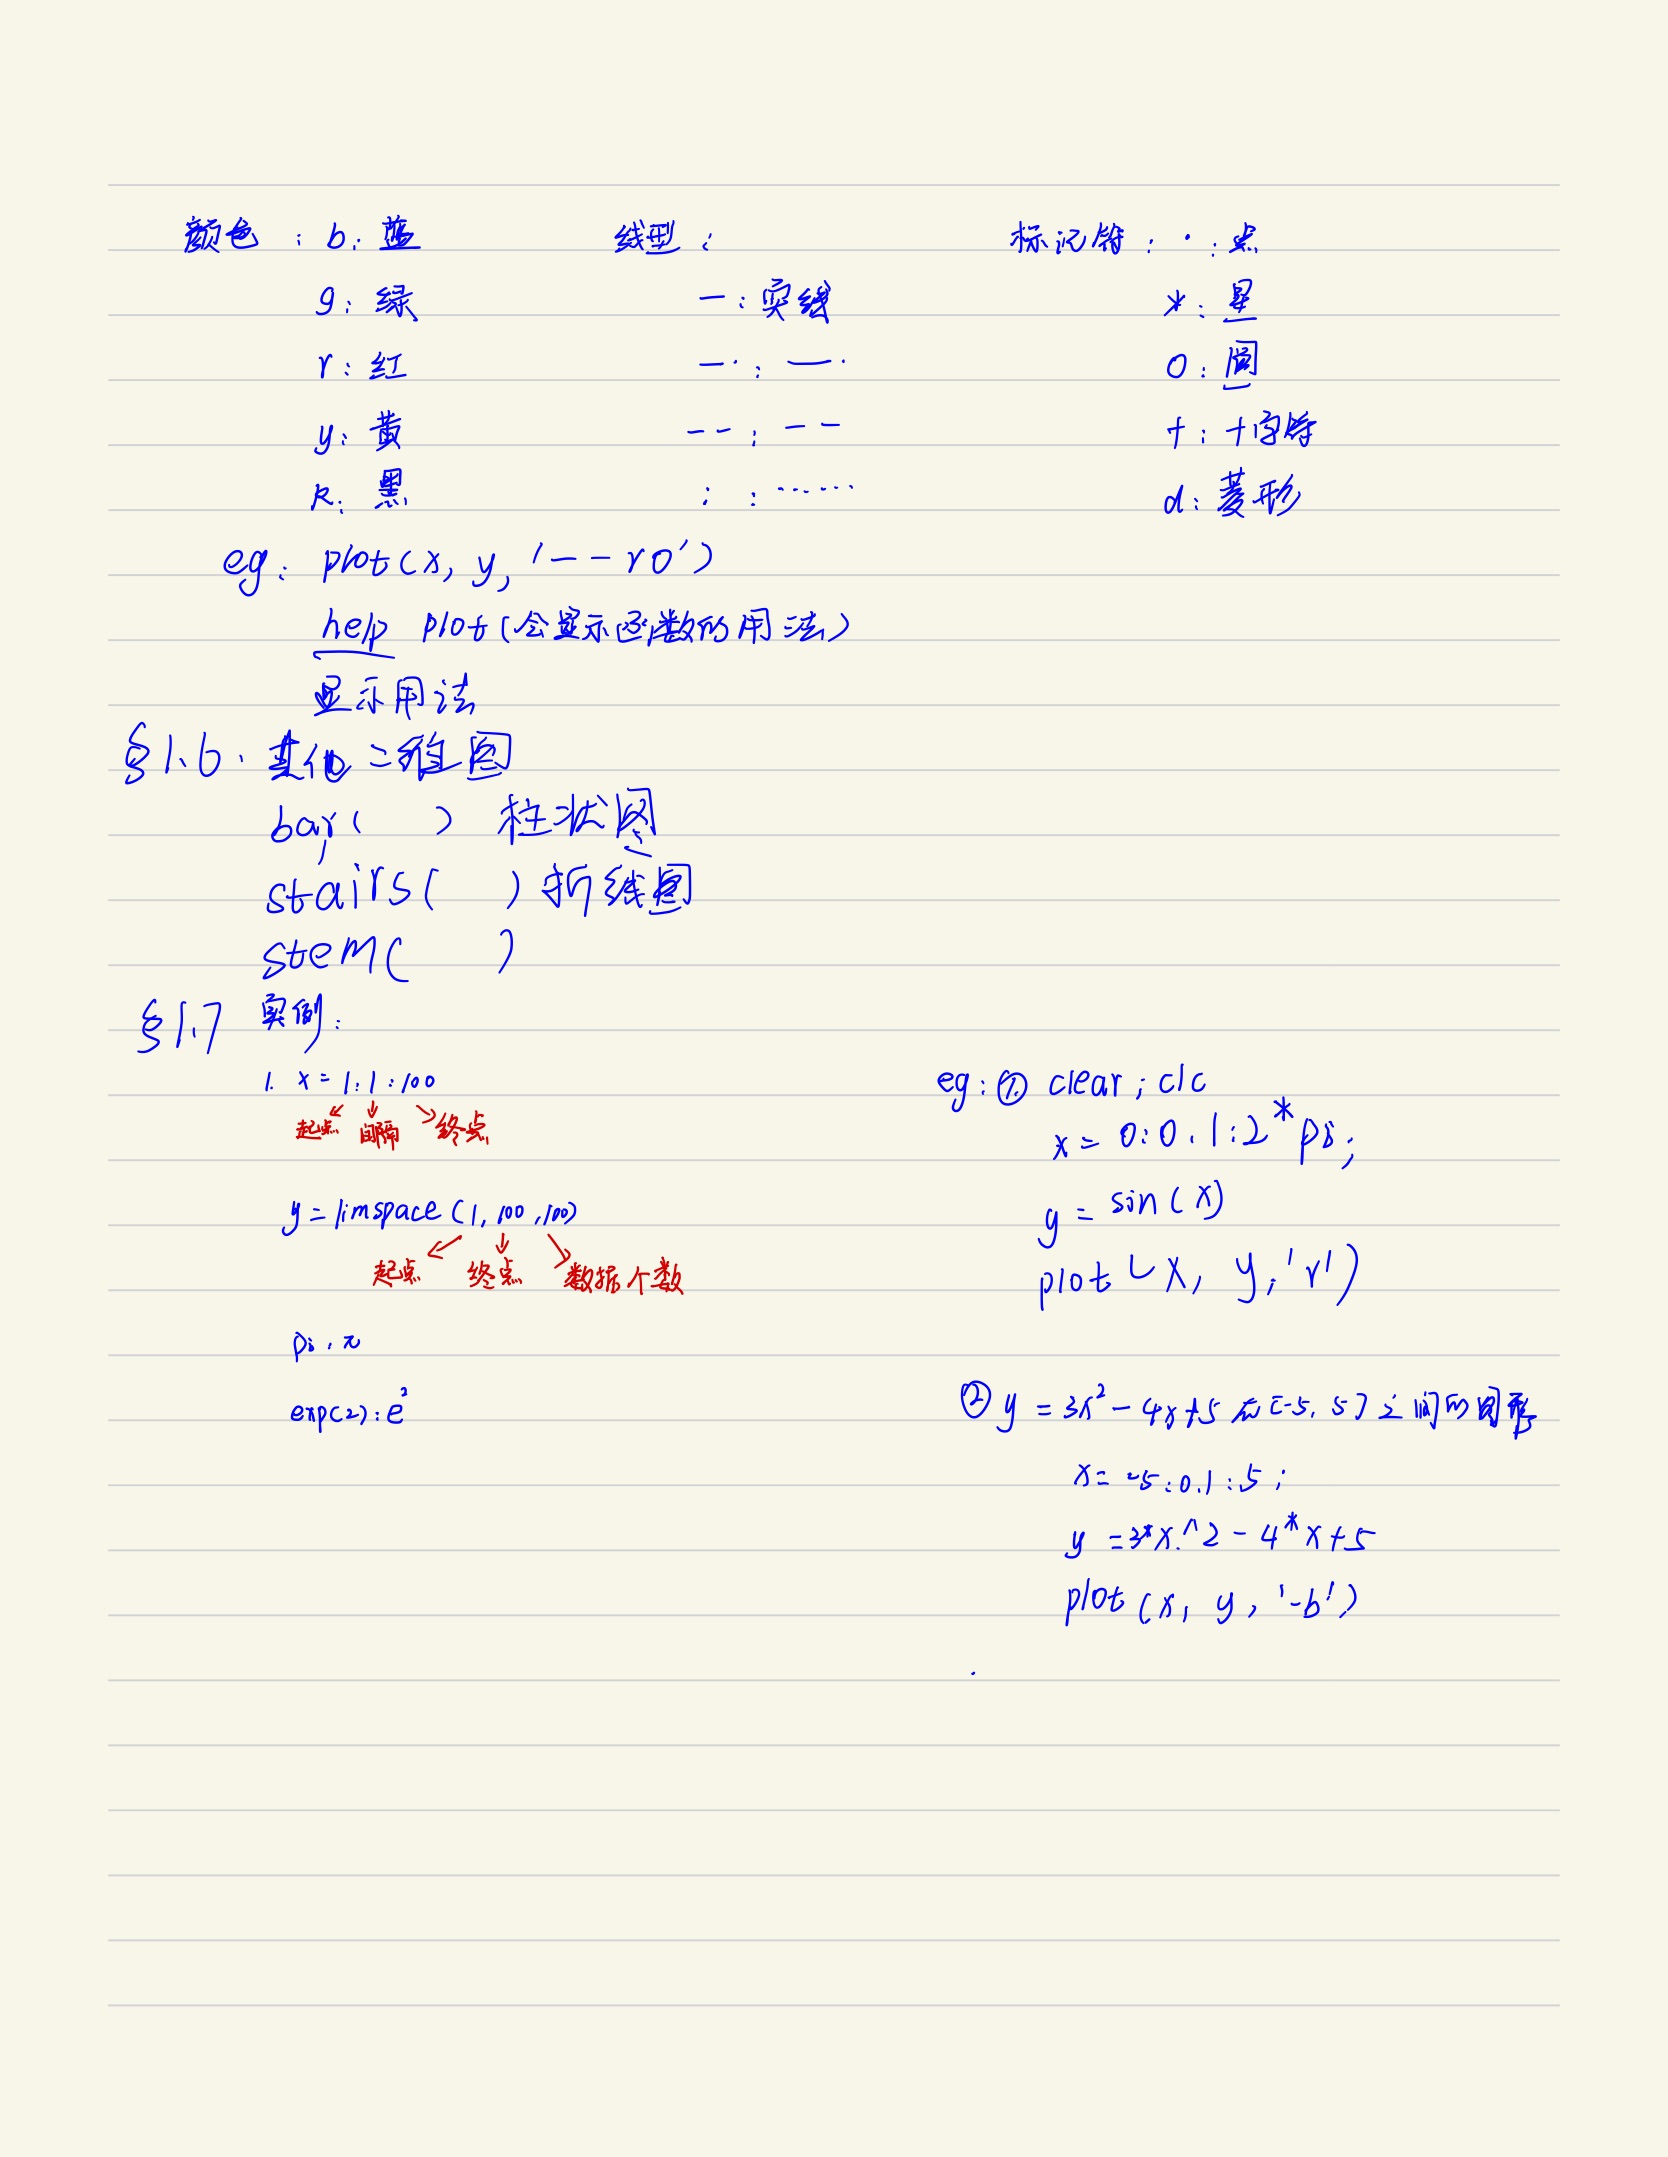 颜色：b：蓝 线型： 标记符：·：点
g：绿 —：实线 *：星
r：红 —·：—· o：圆
y：黄 --：-- +：十字符
k：黑 :：······ d：菱形
eg：plot(x, y, '--ro')
help plot(会显示函数的用法)
显示用法
§1.6. 其他二维图
bar( ) 柱状图
stairs( ) 折线图
stem( )
§1.7 实例：
1. x = 1:1:100
起点 间隔 终点
y = limspace(1, 100, 100)
起点 终点 数据个数
pi：π
exp(2)：e²
eg：① clear; clc
x = 0:0.1:2*pi;
y = sin(x)
plot(x, y, 'r')
② y = 3x² - 4x + 5 在[-5, 5]之间的图形
x = -5:0.1:5;
y = 3*x.^2 - 4*x + 5
plot(x, y, '-b')